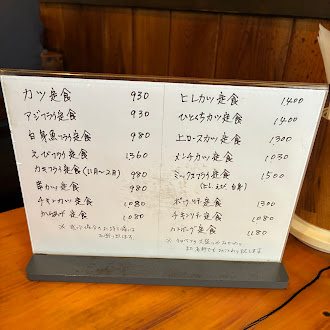 カツ定食 930
アジフライ定食 930
白身魚フライ定食 980
えびフライ定食 1360
カキフライ定食(11月〜2月) 980
串カツ定食 980
チキンカツ定食 1080
からあげ定食 1080
ヒレカツ定食 1400
ひとくちカツ定食 1400
上ロースカツ定食 1300
メンチカツ定食 1030
ミックスフライ定食 1500
(ヒレ、えび、白身)
ポークソテー定食 1300
チキンソテー定食 1080
ハンバーグ定食 1180